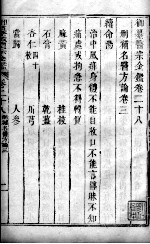 御纂醫宗金鑑卷二十八
刪補名醫方論卷三
續命湯
治中風痱身體不能自收口不能言冒昧不知
痛處或拘急不得轉側
麻黃 桂枝
石膏 乾薑
杏仁四十 川芎
當歸 人參